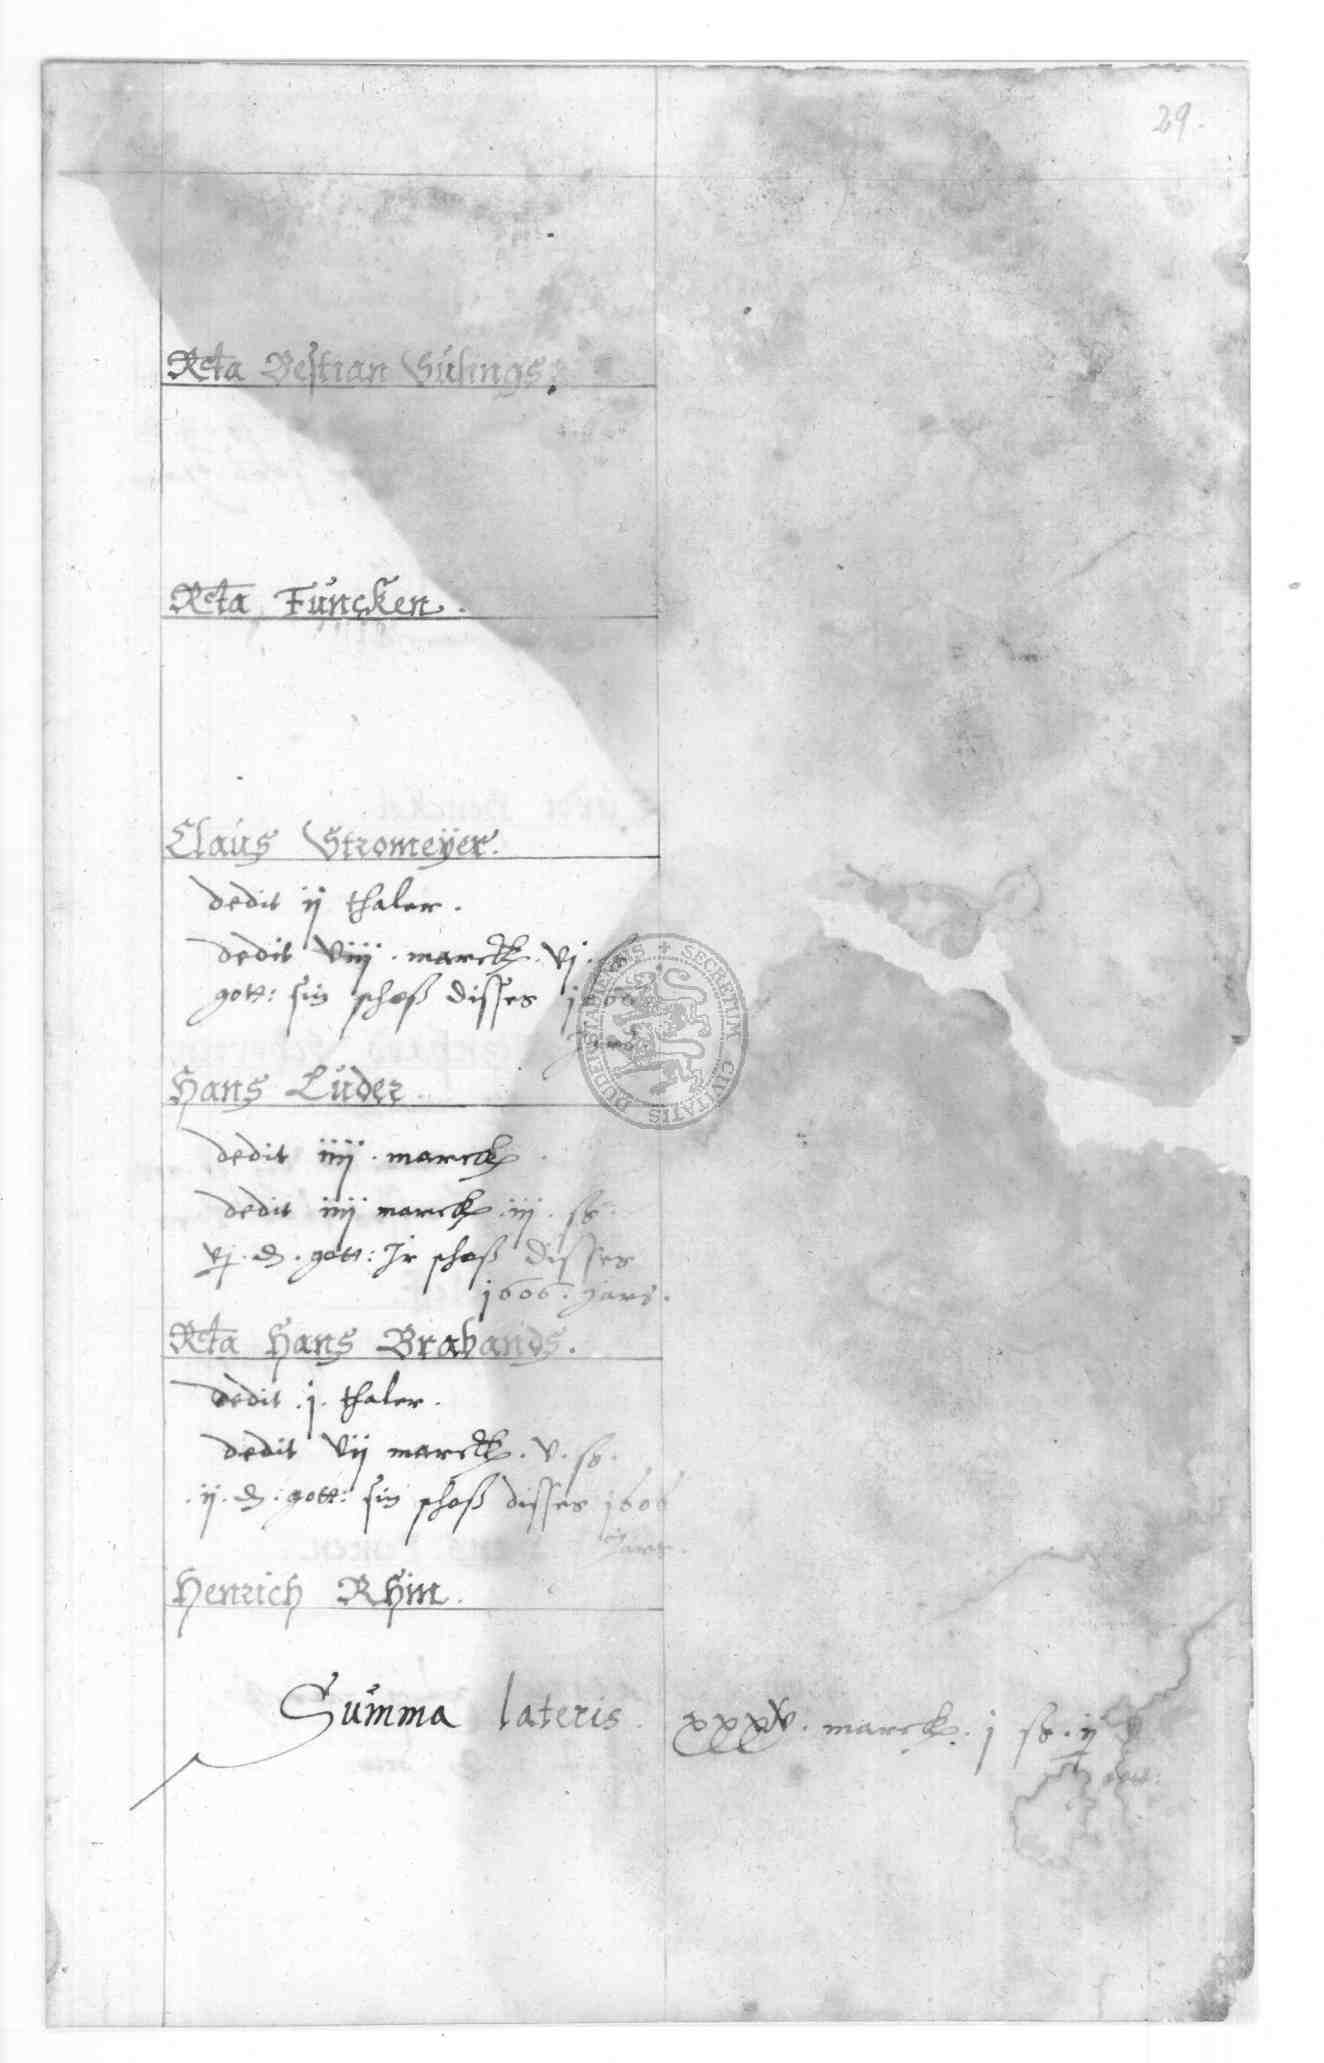 29.
Rcta Bestian Sulings.
Rcta Funcken.
Claus Stromeÿer.
dedit ij thaler.
dedit viij. marck. vj.
gott: sin schoß disses 1606
Jars
Hans Lüder.
dedit iiij. marck
dedit iiij marck. iij. sß.
vj. d. gott: Jr schoß disses
1606. Jars.
Rcta Hans Brabands.
dedit .j. thaler.
dedit vij marck. v. sß.
.ij. d. gott: sin schoß disses 1606
Jars.
Henrich Rhin.
Summa lateris. xxxv. marck. j sß. ij
gott:
SECRETUM CIVITATIS DUDERSTADIENSIS